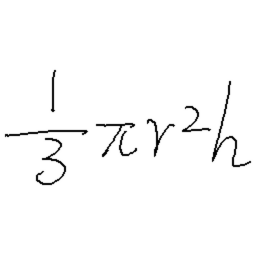 \frac{1}{3} \pi r^2 h